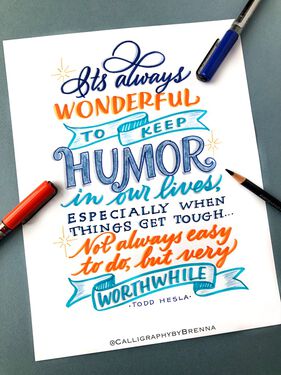 Its always
WONDERFUL
TO KEEP
HUMOR
in our lives,
ESPECIALLY WHEN
THINGS GET TOUGH...
Not always easy
to do, but very
WORTHWHILE
·TODD HESLA·
@CALLIGRAPHYBYBRENNA